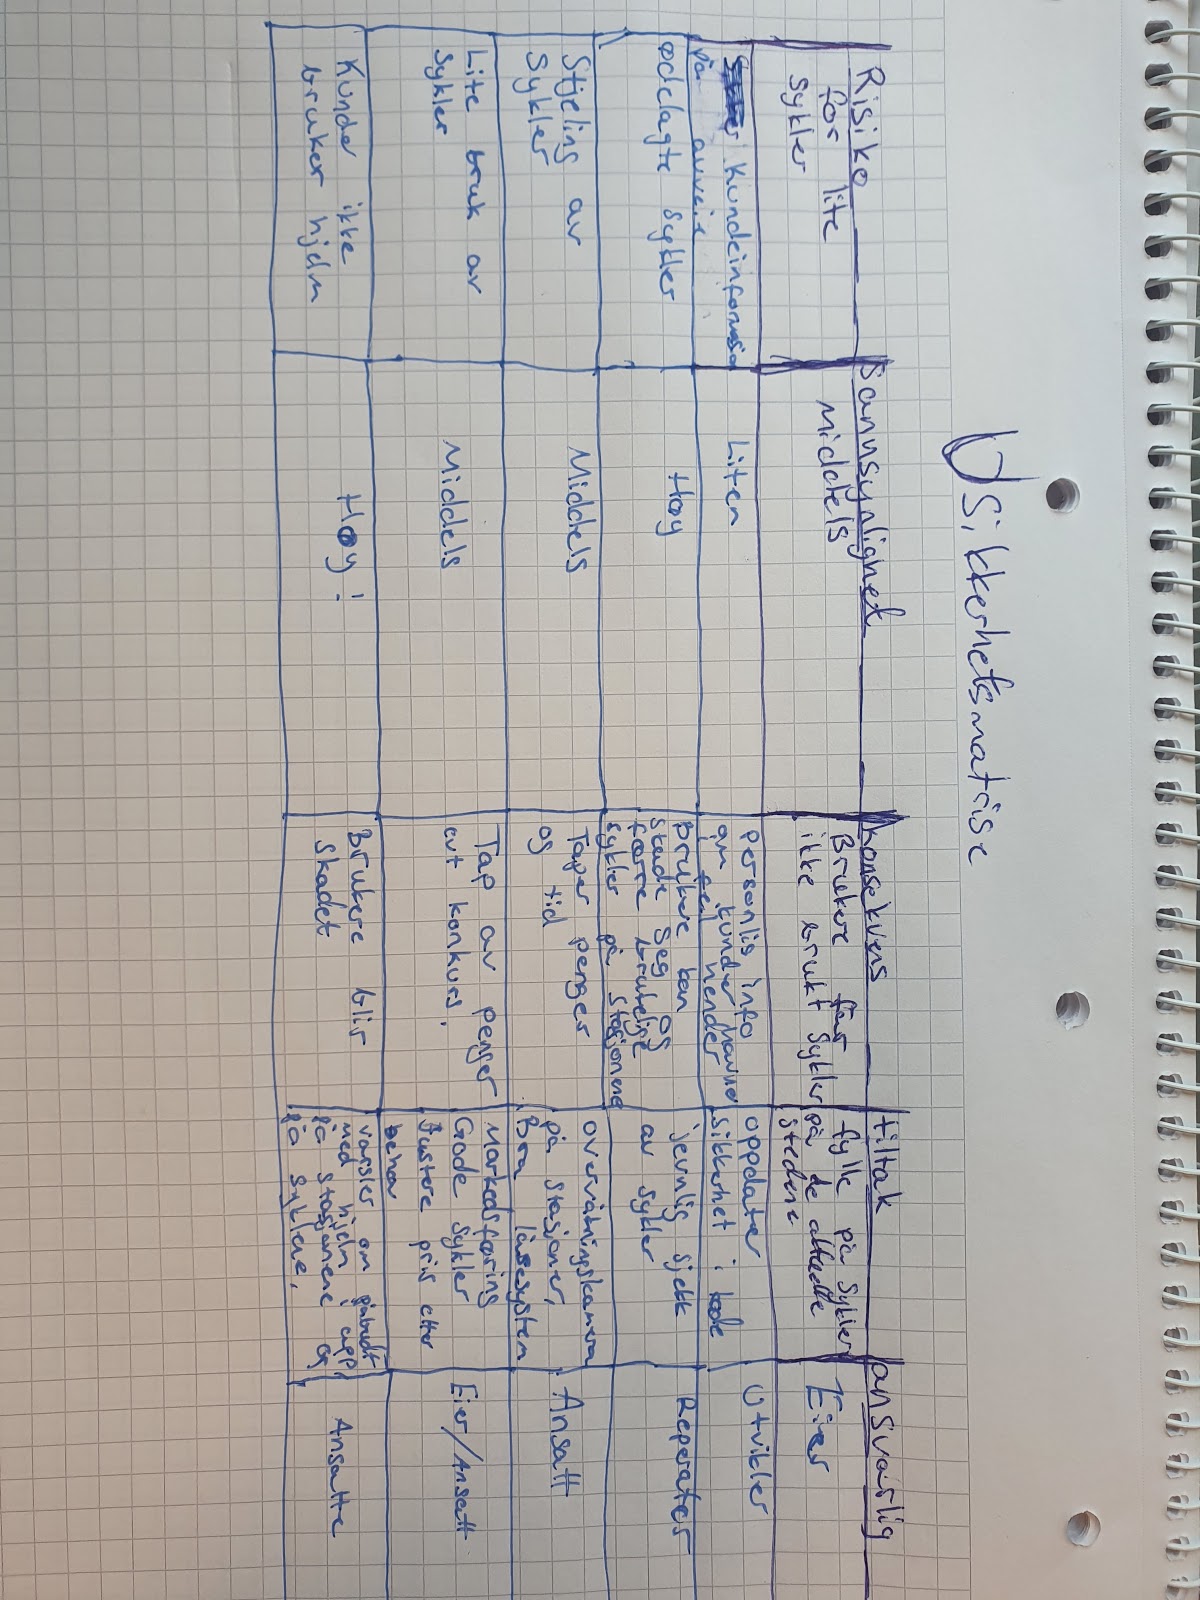 Usikkerhetsmatrise
Risiko
Sannsynlighet
konsekvens
tiltak
ansvarlig
for lite
sykler
Middels
Brukere får
ikke brukt sykler
fylle på sykler
på de
stedene
Eier
Kundeinformasjon
på avveie
Liten
personlig info
om kunder havne
feil hender
oppdater
sikkerhet i kode
Utvikler
ødelagte sykler
Høy
Brukere kan
skade seg og
færre brukelige
sykler på stasjonene
jevnlig sjekk
av sykler
Reperatør
Stjeling av
Sykler
Middels
Taper penger
og tid
overvåkningskamera
på stasjoner,
Bra låsesystem
Ansatt
Lite bruk av
Sykler
Middels
Tap av penger
evt konkurs.
Markedsføring
Gode sykler
Justere pris etter
behov
Eier/Ansatt
Kunder ikke
bruker hjelm
Høy!
Brukere blir
skadet
varsler om påbudt
med hjelm i app,
på stasjonene og
på syklene.
Ansatte